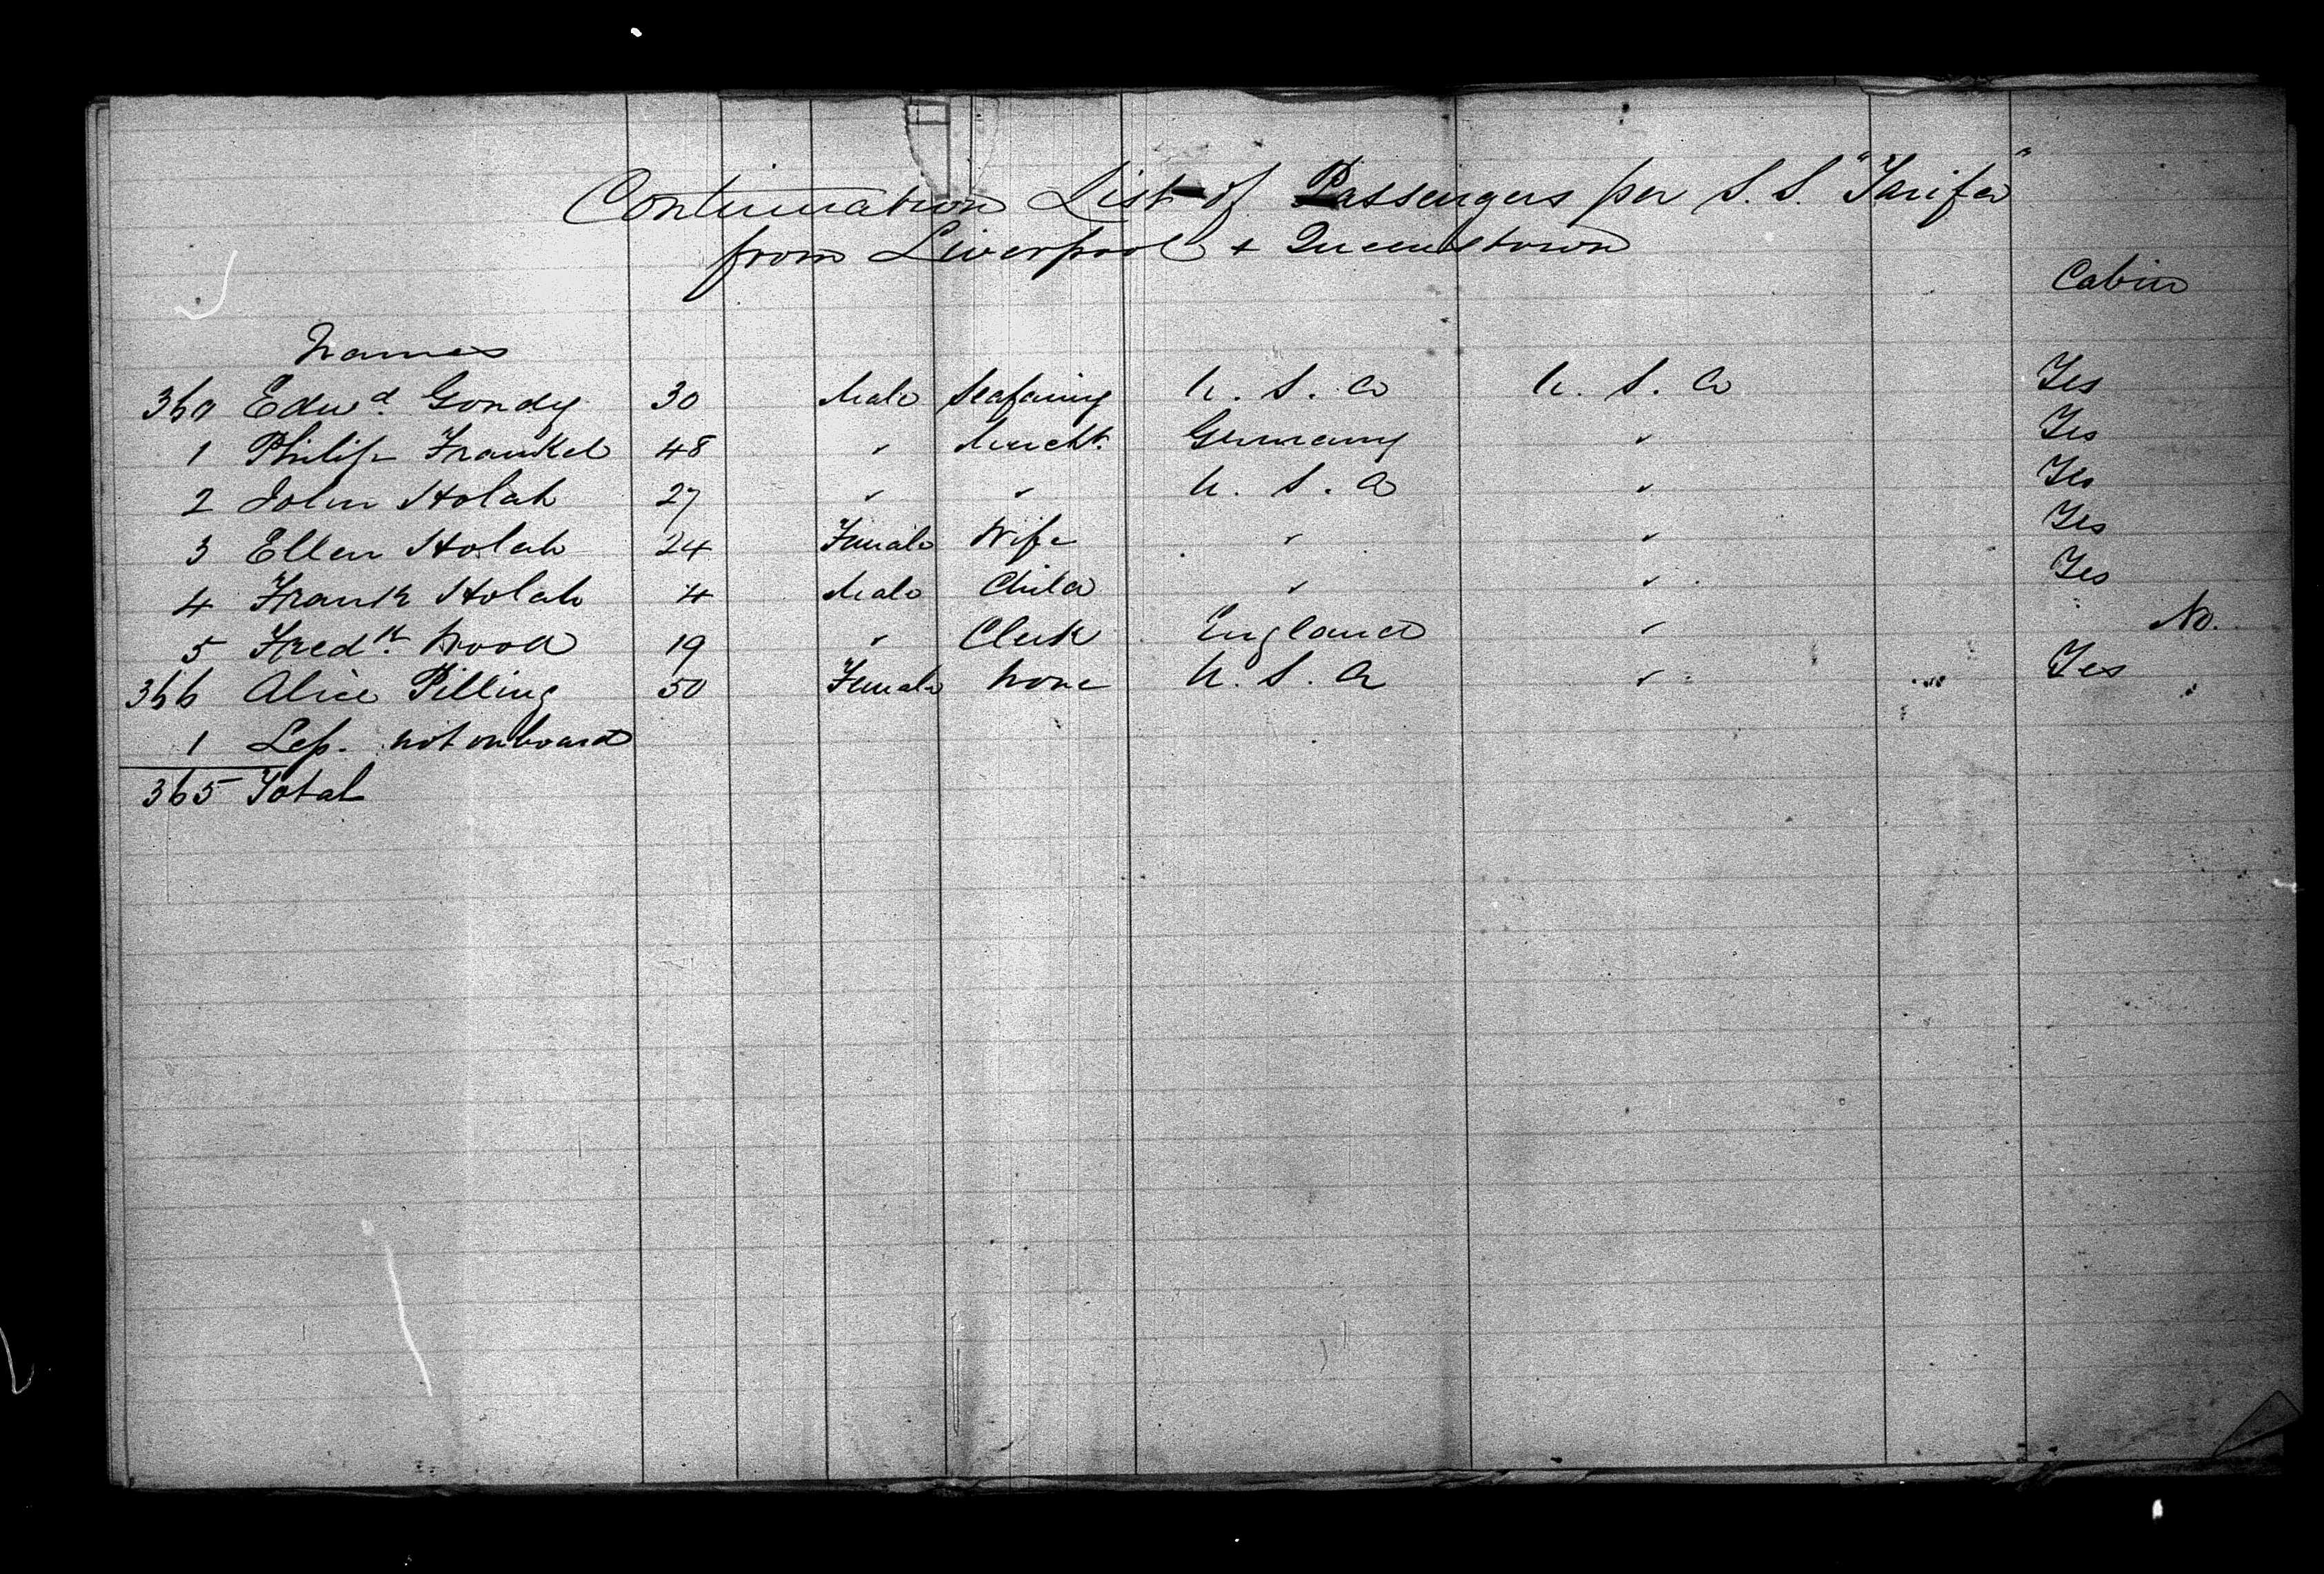 Continuation List of Passengers per S. S. "Tarifa"
from Liverpool + Queenstown
Cabin
Names
360 Edwd. Gondy 30 Male Seafaring U. S. A U. S. A Yes
1 Philip Frankel 48 " Mercht. Germany " Yes
2 John Holah 27 " " U. S. A " Yes
3 Ellen Holah 24 Female Wife " " Yes
4 Frank Holah 4 Male Child " " Yes
5 Fredk. Wood 19 " Clerk England " No.
366 Alice Pilling 50 Female None U. S. A " Yes
1 Les. not on board
365 Total